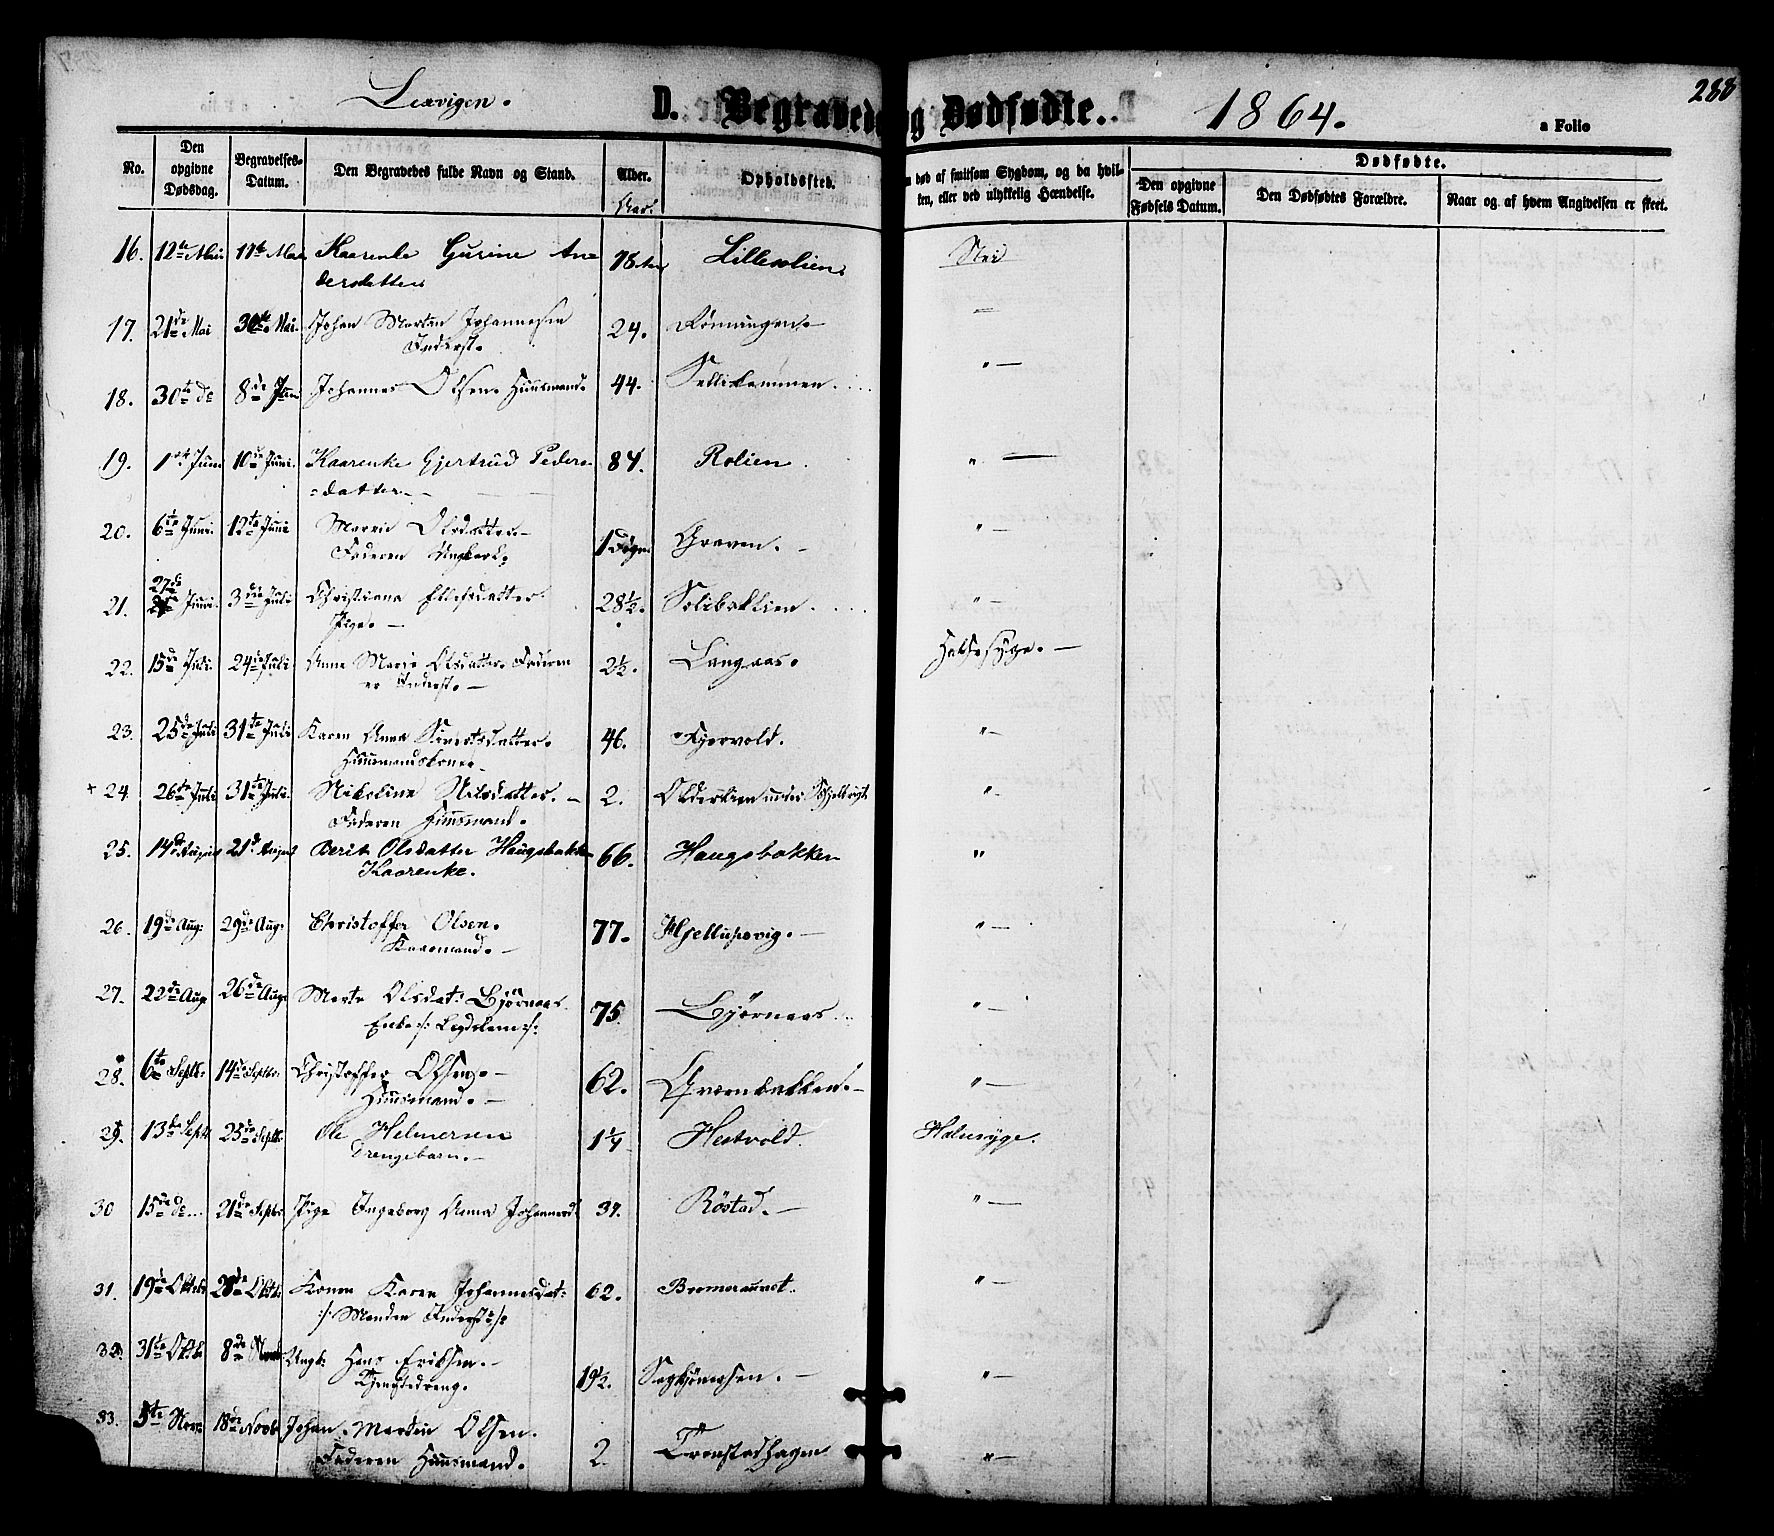 288
Lexvigen.
D. Begravede og Dødfødte. 1864.
a Folio
No.
Den opgivne Dødsdag.
Begravelses-Datum.
Den Begravedes fulde Navn og Stand.
Alder.
Aar.
Opholdssted.
død af smitsom Sygdom, og da hvil-
ken, eller ved ulykkelig Hændelse.
Dødfødte.
Den opgivne Fødsels Datum.
Den Dødfødtes Forældre.
Naar og af hvem Angivelsen er skeet.
16. 12te Mai 17de Mai Kaarenke Gurine An= 78 Aar Lilleolien Nei
dersdatter
17. 21de Mai 30te Mai. Johan Morten Johannesen 24. Rømmingen. —
Inderst.
18. 30te do 8de Juni Johannes Olsen Huusmand. 44. " —
19. 1ste Juni 10de Juni. Kaarenke Gjertrud Peders 84. Rolien. " —
=datter
20. 6te Juni. 12te Juni Olsdatter. 1 Døgn Graven. " —
Faderen Ungkarl.
21. 27de Juni. 3die Juli Christiana Ellefsdatter 28½. Solibaklien. " —
Pige. —
22. 15de Juli. 24de Juli Anne Marie Olsdatter. Faderen 2½. Langaas. Halssyge. —
er Inderst. —
23. 25de Juli 31te Juli Karen Anna Sivertsdatter. 46. Kjervold. " —
Huusmandskone
+ 24. 26de Juli 31te Juli. Nikoline Nilsdatter. — 2. Olderlien under " —
Faderen Huusmand.
25. 14de August 21de August Berit Olsdatter Haugsbakken 66. Haugsbakken "
Kaarenke.
26. 19de Aug: 29de Aug: Christoffer Olsen. 77. Hjellupsvig. — " —
Kaarmand. —
27. 22de Aug: 26de Aug: Merte Olsdat: Bjørnaas 75. Bjørnaas " —
Enke /: Lægdslem :/
28. 6te Septbr. 14de Septbr. Christoffer Olsen. — 62. Qværnbakken. — " —
Huusmand. —
29. 13de Septbr 25de Septbr. Ole Helmersen 1¼ Hestvold. Halssyge.
Drengebarn. —
30 15de do 21de Septbr. Pige Ingeborg Anna Johannesd. 37. Røstad. — " —
31. 19de Oktbr 28de Oktbr. Konen Karen Johannesdat: 62. Bromeraunet. " —
/: Manden Inderst :/
32. 31te Oktbr 8de Novbr Ungk: Hans Eriksen. — 19½. — " —
Tjenestedreng.
33. 5te Novbr 18de Novbr Johan Martin Olsen. 2. Tronstadhagen " —
Faderen Huusmand.